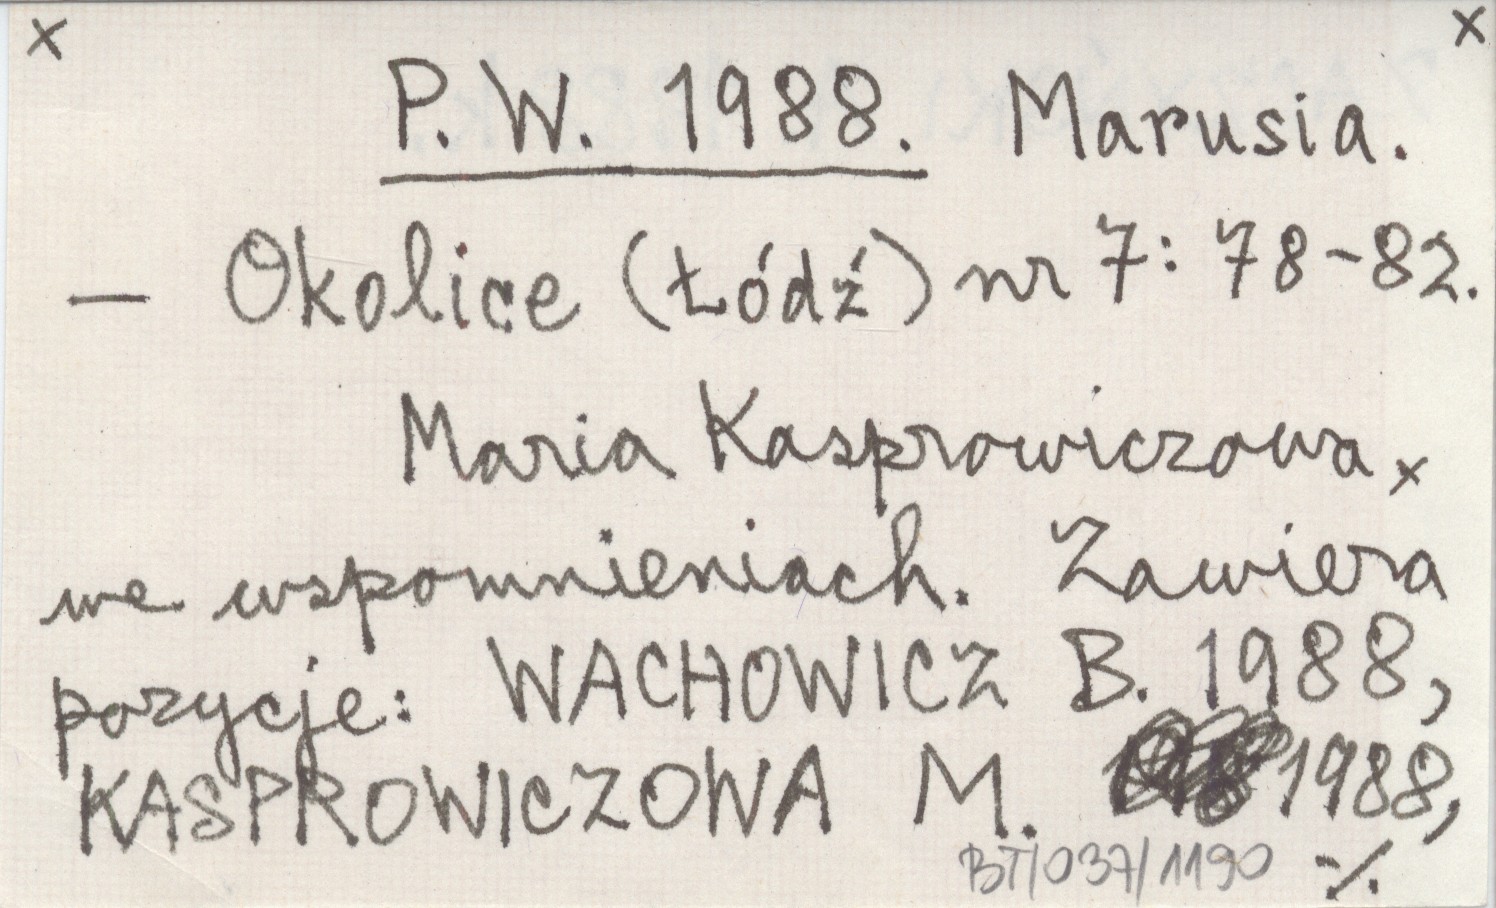 x x
P. W. 1988. Marusia.
— Okolice (Łódź) nr 7: 78-82.
Maria Kasprowiczowa x
we wspomnieniach. Zawiera
pozycje: WACHOWICZ B. 1988,
KASPROWICZOWA M. 1988,
BT/037/1190 ·/.